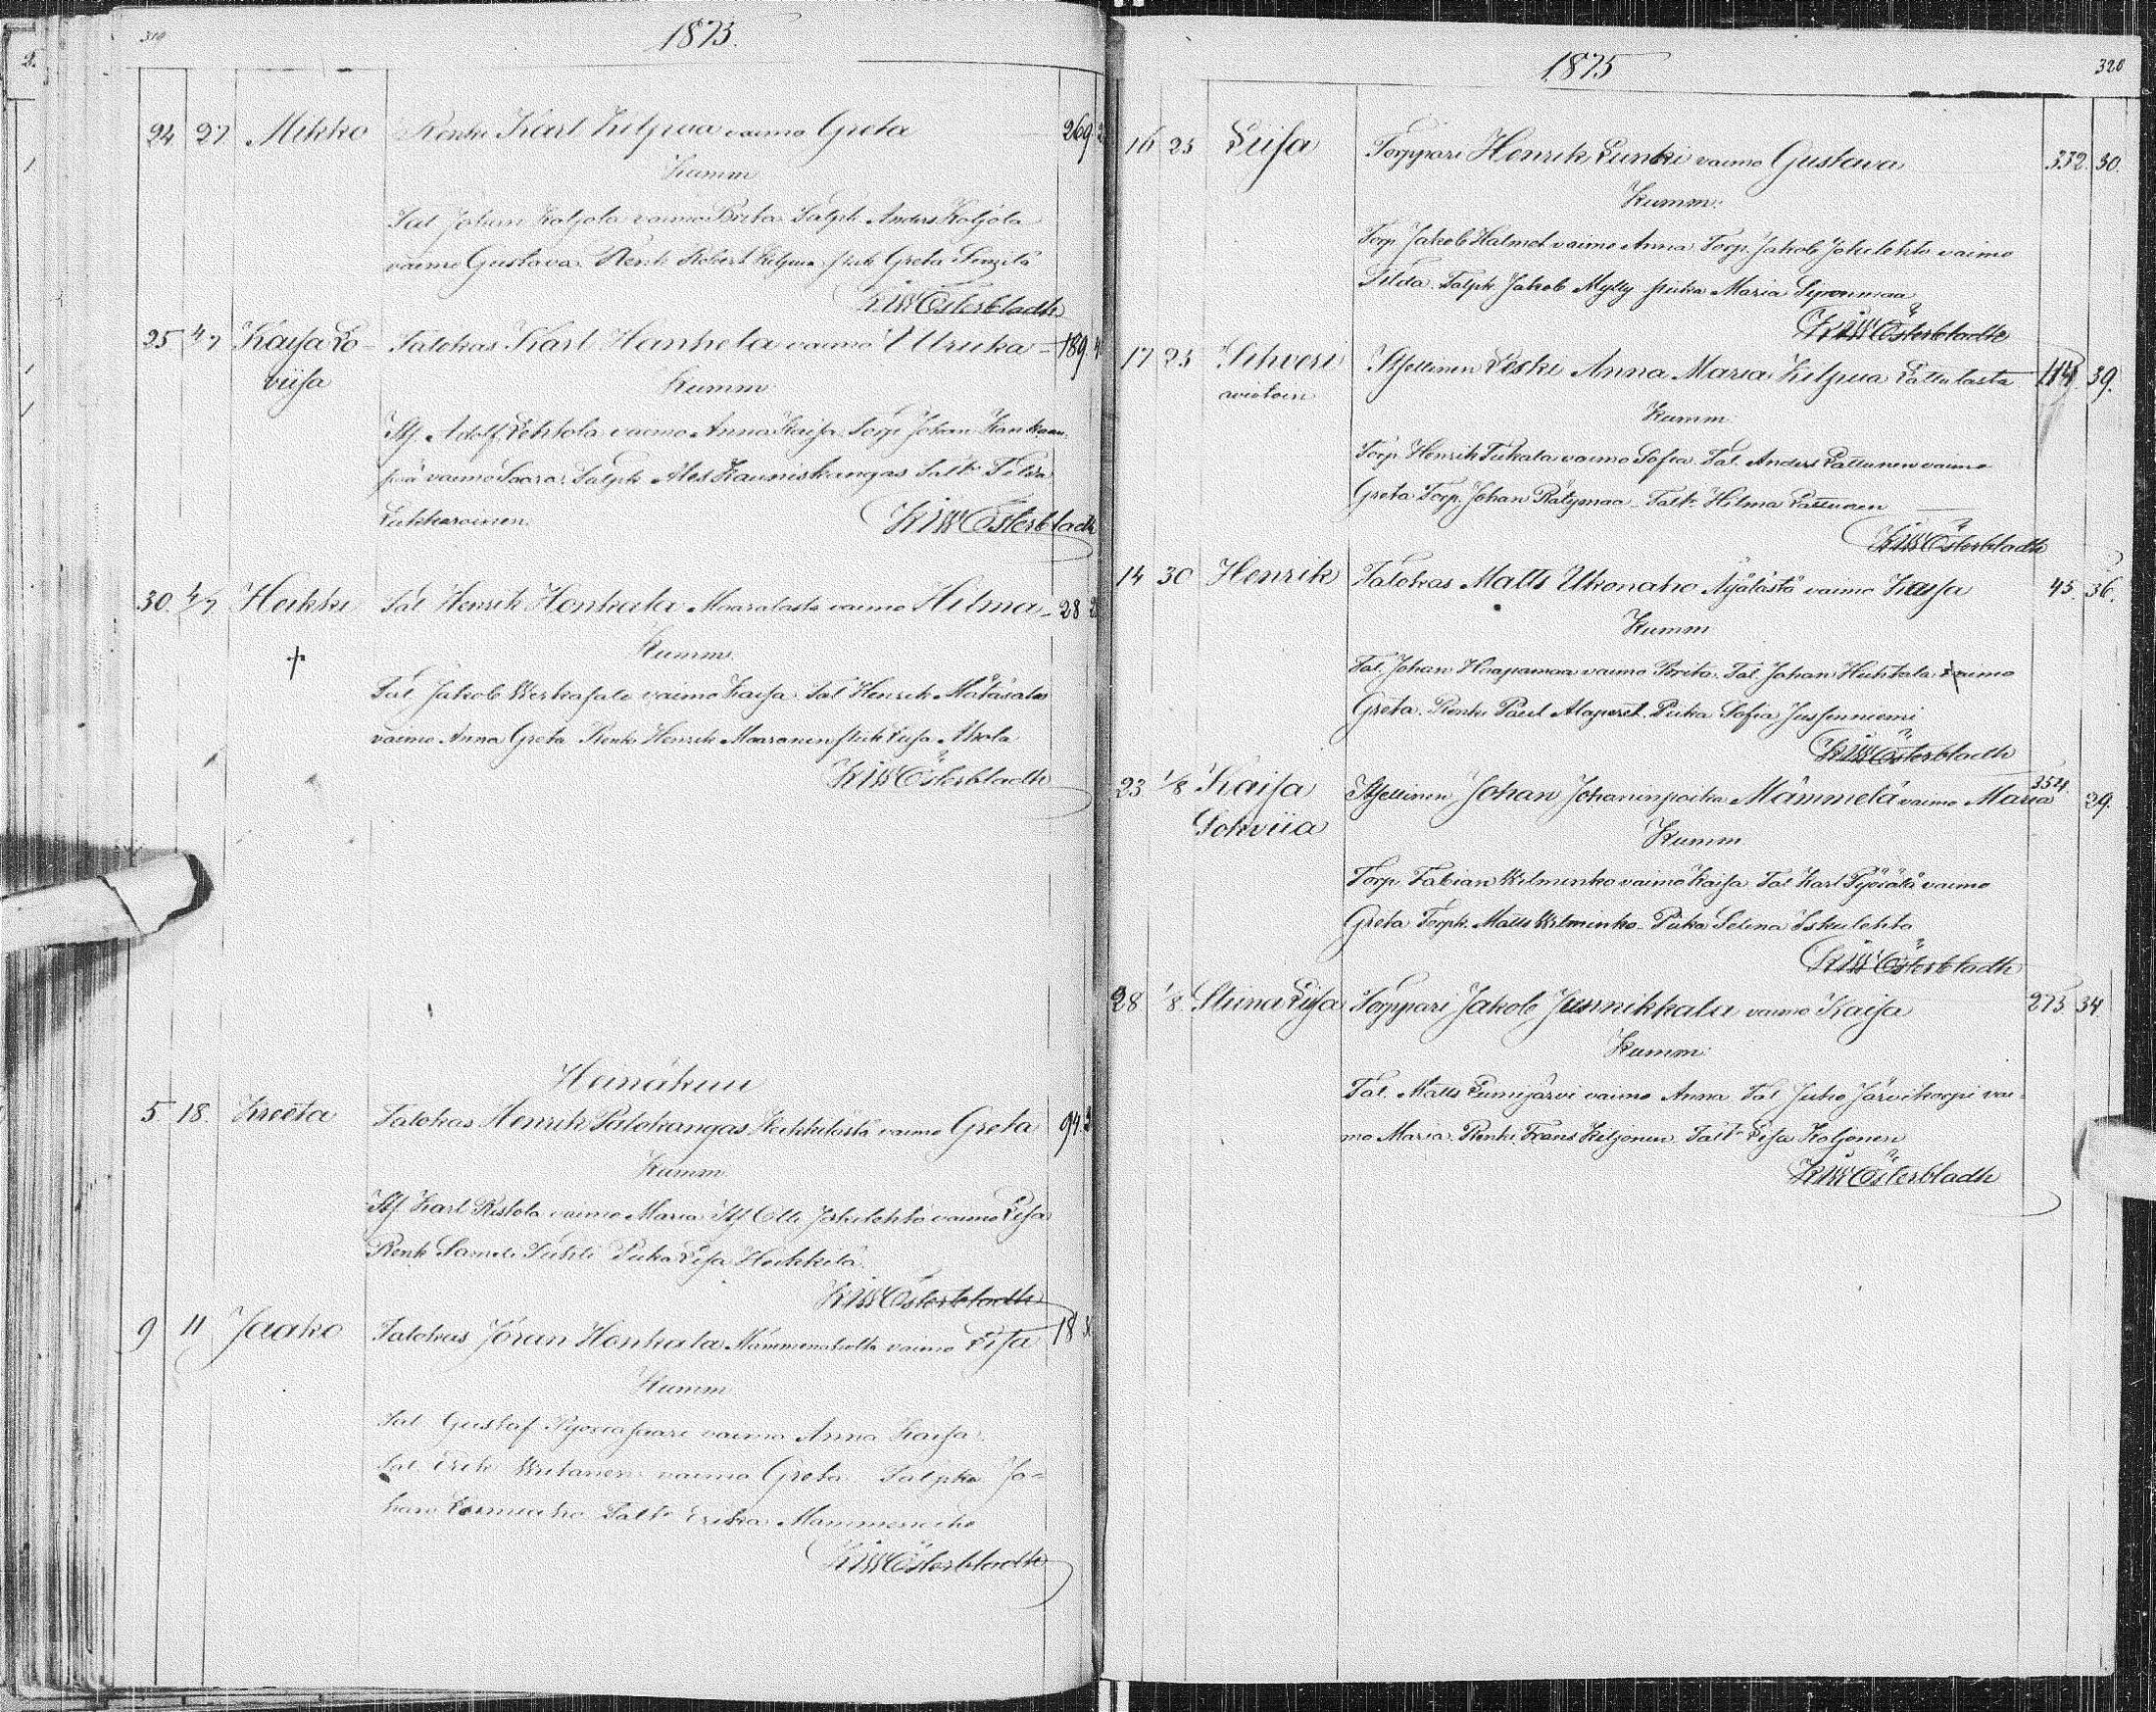 1873.
24 27 Mikko Renki Karl Kilpua vaimo Greta 269.
Kumm
Tal Johan Koljola vaimo Brita Talpk. Anders Koljola
vaimo Gustava. Renk Robert Kilpua. Greta
KWÖsterbladh
25 4/7 Kaisa Lo- Talokas Karl Hankela vaimo Ulrika 189.
viisa Kumm
Itj. Adolf Lehtola vaimo Anna Kaisa. Torp Johan Kankaan-
pää vaimo Saara. Talpk Alex Kauniskangas Talt Tilda
Lukkaroinen.
KWÖsterbladh
30. 4/7 Heikki Tal Henrik Honkala Maaralasta vaimo Hilma 28
Kumm
Tal Jakob Werkasalo vaimo Kaisa Tal Henrik Matäsalo
vaimo Anna Greta Renk Henrik Maaranen Liisa Ahola
KWÖsterbladh
Heinäkuu
5 18. Kreeta Talokas Henrik Palokangas Heikkilästä vaimo Greta 94.
Kumm
Itj Karl Ristola vaimo Maria Itj Olli Jokilehto vaimo Lisa
Renk Sameli Piika Lisa Heikkilä.
KWÖsterbladh
9 11 Jaako Talokas Jöran Honkala Mämmenaholta vaimo Lisa 18
Kumm
Tal Gustaf Pyöriäsaari vaimo Anna Kaisa.
Tal. Erik Wiitanen vaimo Greta. Talpka Jo-
han Talt. Erika Mämmenaho
KWÖsterbladh
1875
320
16 25 Liisa Torppari Henrik Lunki vaimo Gustava 332. 30.
Kumm.
Torp Jakob Halmet vaimo Anna Torp. Jakob Jokilehto vaimo
Tilda. Talpk. Jakob Mylly piika Maria Siponmaa
KWÖsterbladh
17 25 Sihveri Itsellinen Leski Anna Maria Kilpua Lattulasta 114 39.
aviotoin
Kumm
Torp Henrik Tukala vaimo Sofia. Tal. Anders Lattunen vaimo
Greta Torp. Johan Rätymaa Talt. Hilma Lattunen
KWÖsterbladh
14 30 Henrik Talokas Matts Ukonaho Äijälästä vaimo Kaisa 45. 36.
Kumm
Tal. Johan Haapamaa vaimo Brita. Tal Johan Huhtala vaimo
Greta. Renki Paul Alaperet. Piika Sofia Jussinniemi
KWÖsterbladh
23 1/8 Kaisa Itsellinen Johan Johaninpoika Mämmelä vaimo Maria 352. 29.
Sohviia Kumm
Torp. Fabian Wilminko vaimo Kaisa Tal Karl Työlälä vaimo
Greta Torpk. Matts Wilminko. Piika Selina Iskulehto
KWÖsterbladh
28 1/8. Stiina Liisa Torppari Jakob Junnikkala vaimo Kaisa 273. 34.
Kumm
Tal. Matts Lumijärvi vaimo Anna Tal Juho Järvikorpi vai-
mo Maria. Renki Frans Kiljonen. Talt. Lisa Koljonen
KWÖsterbladh